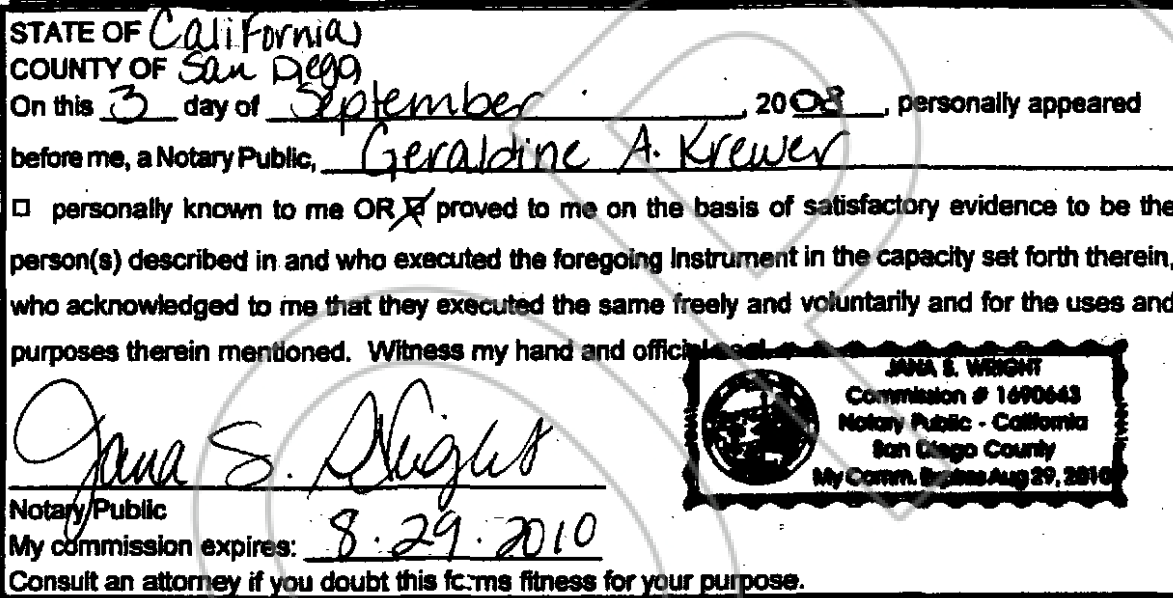 STATE OF California
COUNTY OF San Diego
On this 3 day of September, 2008, personally appeared
before me, a Notary Public, Geraldine A. Krewer
□ personally known to me OR ☒ proved to me on the basis of satisfactory evidence to be the
person(s) described in and who executed the foregoing Instrument in the capacity set forth therein,
who acknowledged to me that they executed the same freely and voluntarily and for the uses and
purposes therein mentioned. Witness my hand and official seal.
JANA S. WRIGHT
Commission # 1690643
Notary Public - California
San Diego County
My Comm. Expires Aug 29, 2010
Jana S. Wright
Notary Public
My commission expires: 8.29.2010
Consult an attorney if you doubt this forms fitness for your purpose.